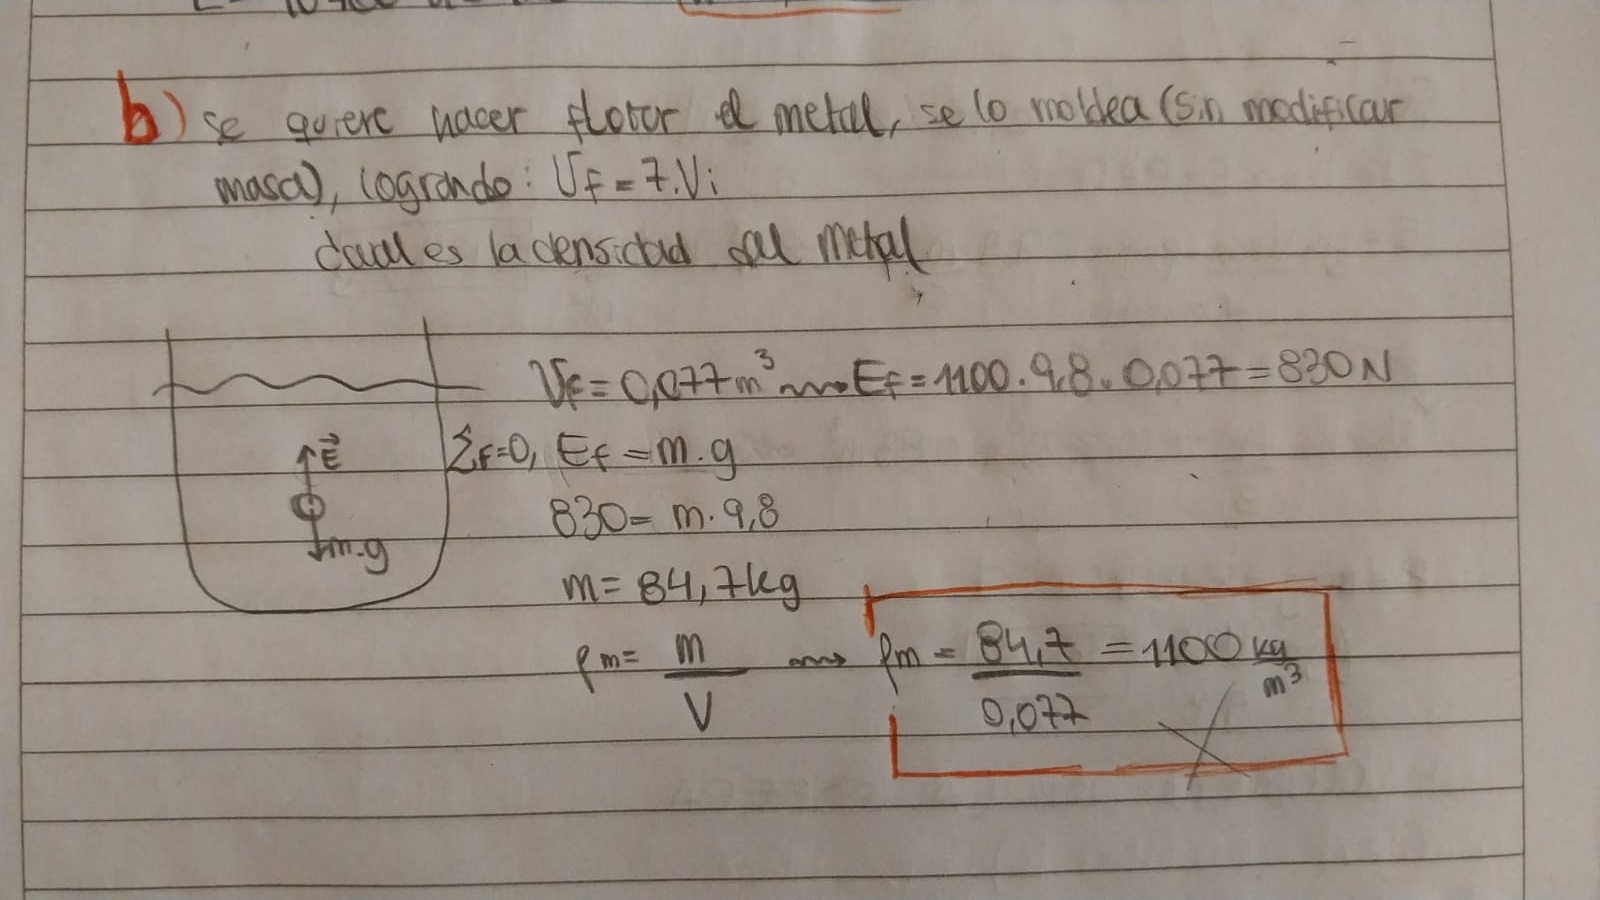 b) se quiere hacer flotar el metal, se lo moldea (sin modificar
masa), logrando: Vf = 7.Vi
cual es la densidad del metal
Vf = 0,077 m³ → Ef = 1100 . 9,8 . 0,077 = 830 N
E
ΣF=0, Ef = m.g
830 = m . 9,8
m.g
m = 84,7 kg
ρm = m / V → ρm = 84,7 / 0,077 = 1100 kg / m³